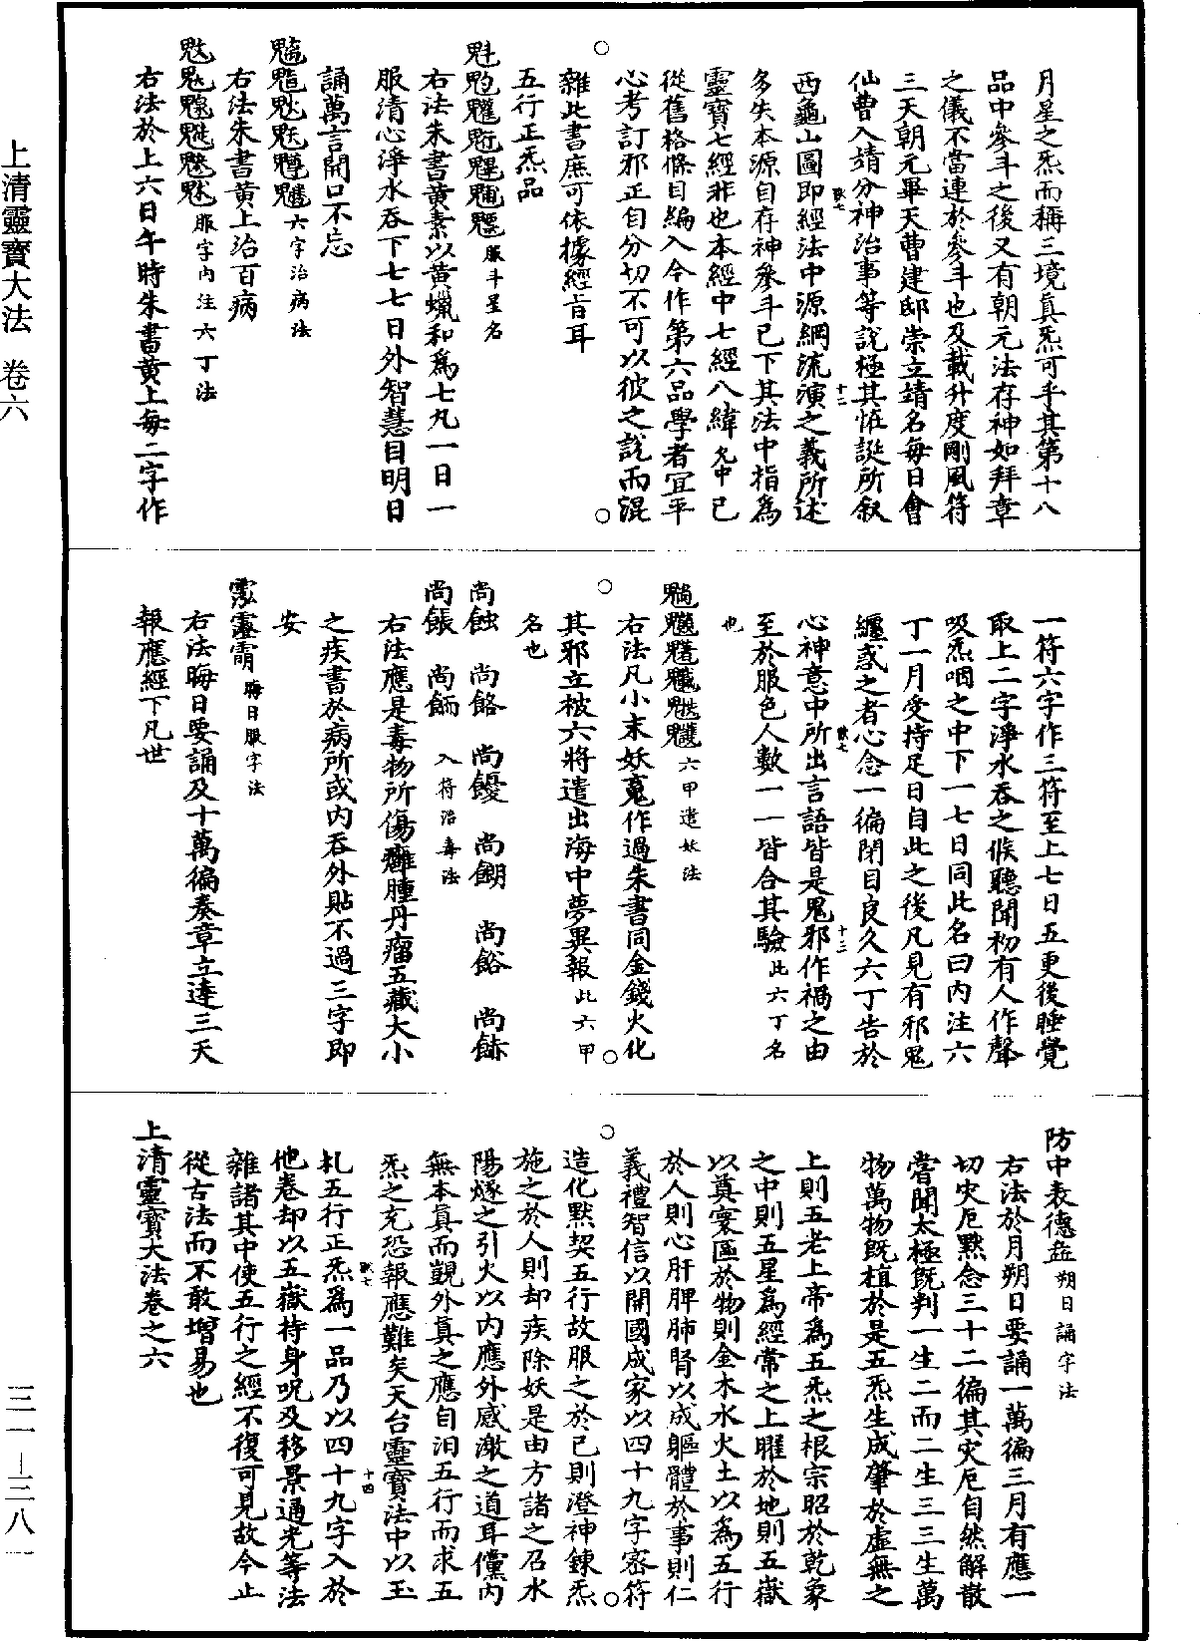 上清靈寶大法 卷六
三一—三八一
月星之炁而稱三境真炁可乎其第十八
品中參斗之後又有朝元法存神如拜章
之儀不當連於參斗也及載升度剛風符
三天朝元畢天曹建邸崇立靖名每日會
仙曹入靖分神治事等說極其怪誕所叙
西龜山圖即經法中源綱流演之義所述
多失本源自存神參斗已下其法中指為
靈寶七經非也本經中七經八緯允中已
從舊格條目編入今作第六品學者宜平
心考訂邪正自分切不可以彼之說而混
雜此書庶可依據經旨耳
五行正炁品
服斗星名
右法朱書黃素以黃蠟和為七丸一日一
服清心淨水吞下七七日外智慧目明日
誦萬言開口不忘
六字治病法
右法朱書黃上治百病
服字內注六丁法
右法於上六日午時朱書黃上每二字作
一符六字作三符至上七日五更後睡覺
取上二字淨水吞之候聽聞初有人作聲
吸炁咽之中下一七日同此名曰內注六
丁一月受持足日自此之後凡見有邪鬼
纏惑之者心念一徧閉目良久六丁告於
心神意中所出言語皆是鬼邪作禍之由
至於服色人數一一皆合其驗此六丁名
也
六甲遣妖法
右法凡小末妖鬼作過朱書同金錢火化
其邪立被六將遣出海中夢異報此六甲
名也
入符治毒法
右法應是毒物所傷癰腫丹瘤五藏大小
之疾書於病所或內吞外貼不過三字即
安
晦日服字法
右法晦日要誦及十萬徧奏章立達三天
報應經下凡世
防中表德益朔日誦字法
右法於月朔日要誦一萬徧三月有應一
切灾厄默念三十二徧其灾厄自然解散
嘗聞太極既判一生二而二生三三生萬
物萬物既植於是五炁生成肇於虛無之
上則五老上帝為五炁之根宗昭於乾象
之中則五星為經常之上曜於地則五嶽
以奠寰區於物則金木水火土以為五行
於人則心肝脾肺腎以成軀體於事則仁
義禮智信以開國成家以四十九字密符
造化默契五行故服之於己則澄神鍊炁
施之於人則却疾除妖是由方諸之召水
陽燧之引火以內應外感激之道耳儻內
無本真而覬外真之應自汨五行而求五
炁之充恐報應難矣天台靈寶法中以玉
札五行正炁為一品乃以四十九字入於
他卷却以五嶽持身呪及移景通光等法
雜諸其中使五行之經不復可見故今止
從古法而不敢增易也
上清靈寶大法卷之六